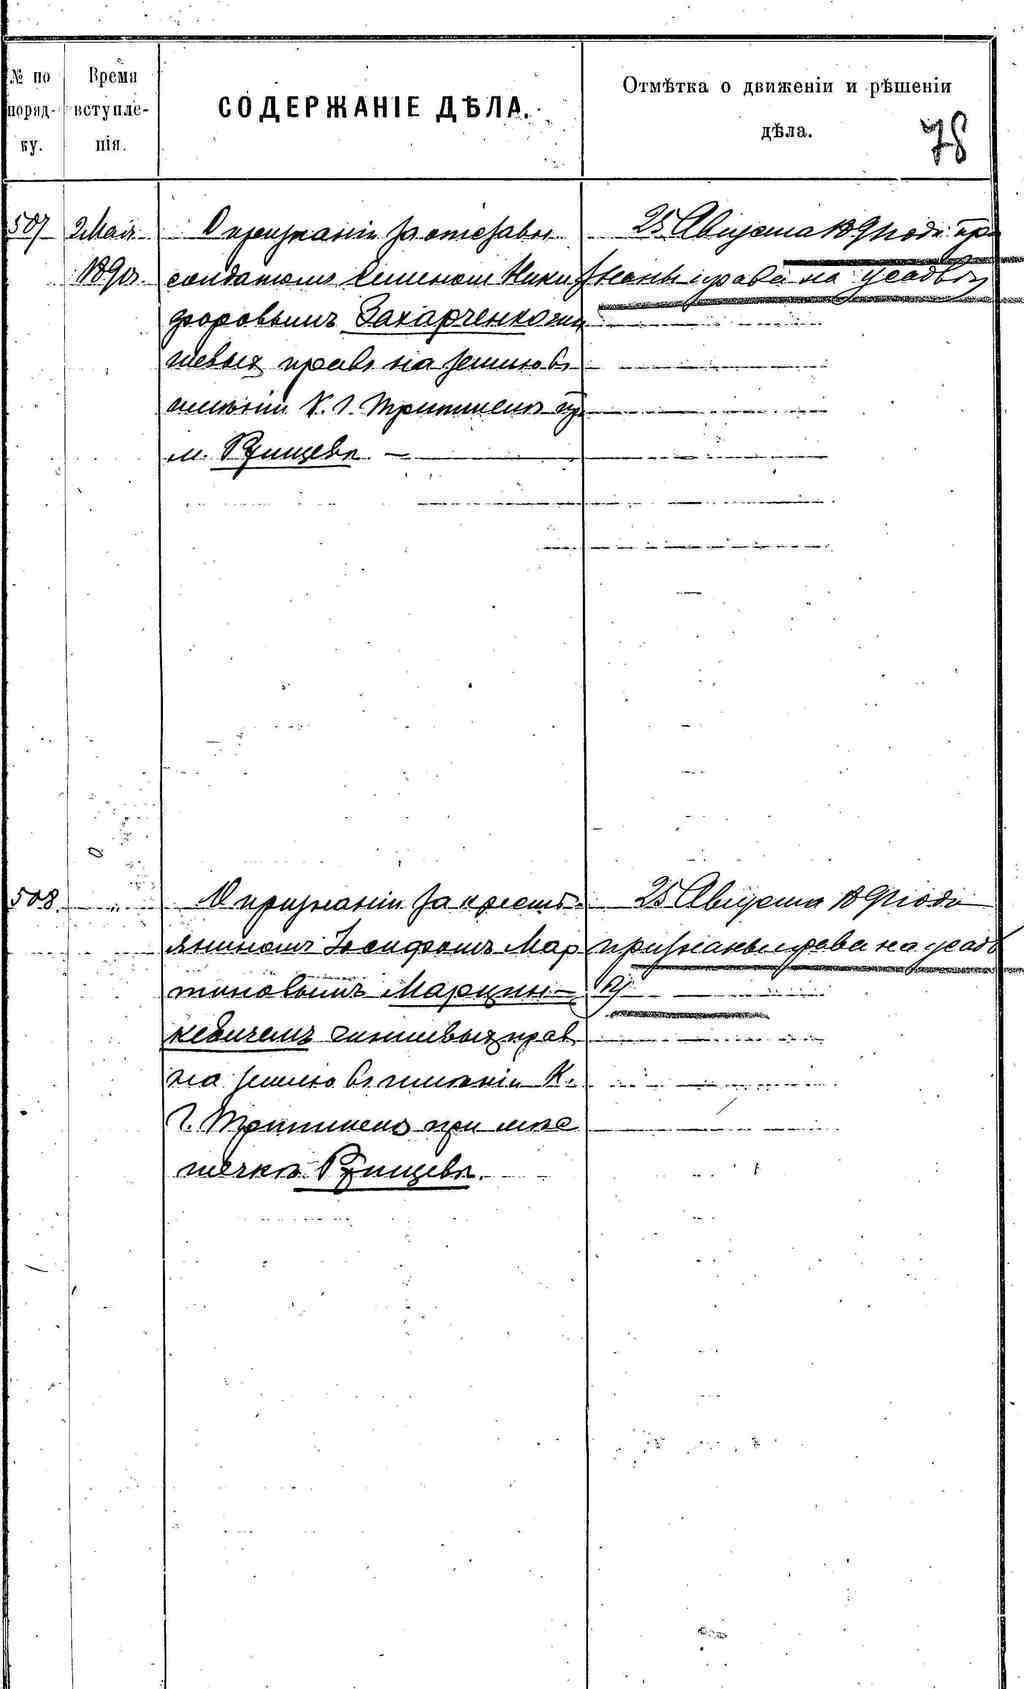 № по порядку.
Время вступленія.
СОДЕРЖАНІЕ ДѢЛА.
Отмѣтка о движеніи и рѣшеніи
дѣла.
78
507
2 Мая
1890 г.
О признаніи за отставн.
солдатомъ Семеномъ Ники
форовымъ Захарченко чин
шевыхъ правъ на землю въ
имѣніи К. Г. Тритшель при
м. Ржищевѣ. —
25 Августа 1891 года при
знаны права на усадьбу
508.
О признаніи за кресть
яниномъ Іосифомъ Мар
тиновымъ Марцин-
кевичемъ чиншевыхъ прав
на землю въ имѣніи К.
Г. Тритшель при мѣс
течкѣ Ржищевѣ.
25 Августа 1891 года
признаны права на усадь
бу